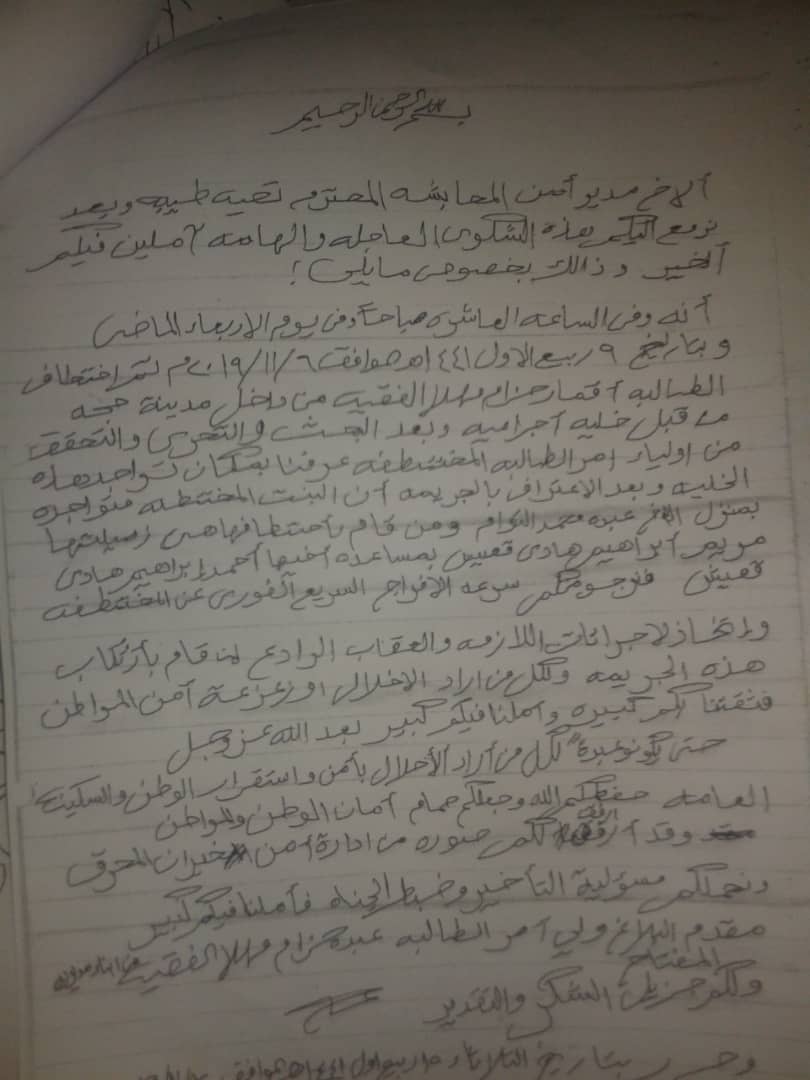 بسم الله الرحمن الرحيم
ألاخ مدير أمن المحابشه المحترم تحيه طيبه وبعد
نرفع اليكم بهذه الشكوى العاجله والهامه آملين فيكم
ألخير وذالك بخصوص مايلي !
أنه وفي الساعه العاشره صباحاً وفي يوم الاربعاء الماضي
وبتاريخ ٩ ربيع الاول ١٤٤١هـ موافق ٢٠١٩/١١/٦م تم اختطاف
الطالبه أقمار حزام مهلا الفقيه من داخل مدينة حجه
من قبل خليه أجراميه وبعد البحث والتحري والتحقق
من اولياء امر الطالبه المختطفه عرفنا بمكان تواجد هذه
الخليه وبعد الاعتراف بالجريمه أن البنت المختطفه متواجده
بمنزل الاخ عبده محمد ومن قام بأختطافها هي زميلتها
مريم أبراهيم هادي قعيش بمساعدة أخيها أحمد إبراهيم هادي
قعيش فنرجو منكم سرعه الافراج السريع ألفوري عن المختطفه
وإتخاذ لاجرائات اللازمه والعقاب الرادع لمن قام بأرتكاب
هذه الجريمه ولكل من اراد الاخلال او زعزعة أمن المواطن
فثقتنا بكم كبيره وأملنا فيكم كبير بعد الله عز وجل
حتى يكونو عبرةً لكل من أراد ألأخلال بأمن واستقرار الوطن والسكينه
العامه حفظكم الله وجعلكم صمام أمان الوطن والمواطن
وقد أرفقنا لكم صوره من ادارة أمن خيران المحرق
ونحملكم مسؤلية التأخير وضبط الجناه فأملنا فيكم كبير
مقدم البلاغ ولي أمر الطالبه عبده حزام مهلا الفقيه من ابناء مديرية
المفتاح
ولكم جزيل الشكر والتقدير
وحرر بتاريخ الثلاثاء ربيع اول ١٤٤١هـ الموافق